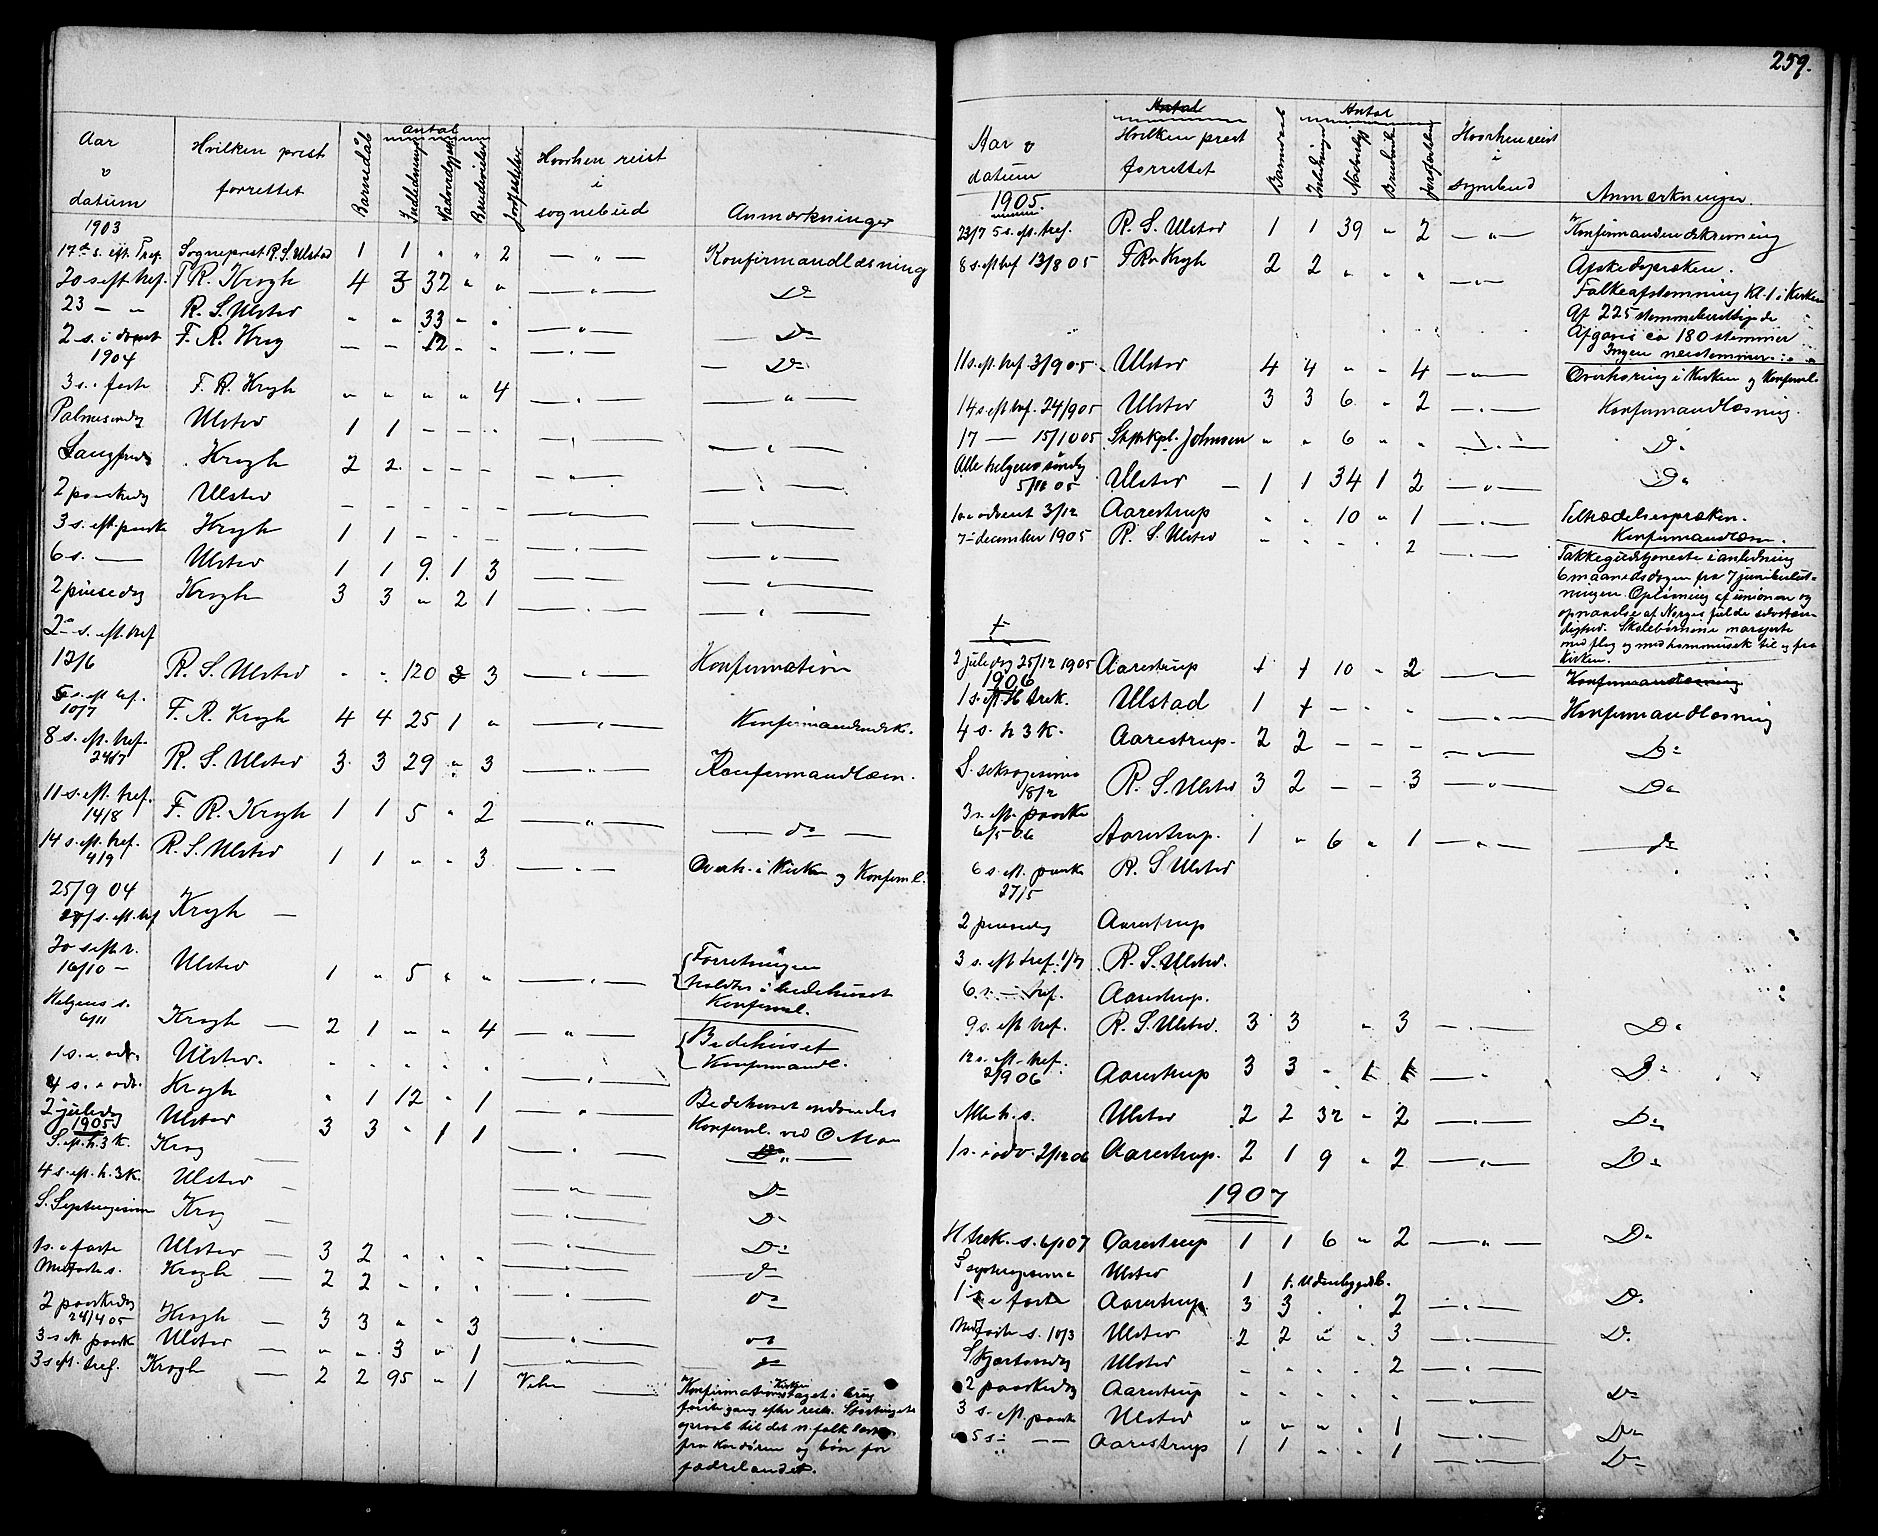 259.
Aar
datum
Hvilken prest
forrettet
Barnedåb
Antal
Indledninger
Nadverdgjest
Brudevielser
Jordfæstelser
Hvorhen reist
i
sognebud
Anmærkninger
1903
17de s. eft. Tref. Sogneprest R. S. Ulstad 1 1 " " 2 — " — Konfirmandlæsning
20 s eft tref. F R. Krogh 4 3 32 " " — " — Do
23 — " R. S. Ulstad " " 33 — " — " — Do
2 s. i advent F. R. Krog — — 12 - - — " — Do
1904
3 s. i faste F. R. Krogh " " " " 4 — " — — " —
Palmesøndag Ulstad 1 1 - - - — " — — " —
Langfredag Krogh 2 2 - - - — " — — " —
2 paaskedag Ulstad - - - - - — " — — " —
3 s. eft. paaske Krogh 1 1 - - - — " — — " —
6 s. — Ulstad 1 1 9 1 3 — " — — " —
2 pinsedag Krogh 3 3 " 2 1 — " — — " —
2en s. eft. tref
12/6 R. S. Ulstad " " 120 3 — " — Konfirmation
5 s. eft tref.
10/7 F. R. Krogh 4 4 25 1 " — " — Konfirmandindsk.
8 s. eft. tref.
24/7 R. S. Ulstad 3 3 29 " 3 — " — Konfirmandlæsn.
11 s. eft. tref.
14/8 F. R. Krogh 1 1 5 " 2 — " — — do —
14 s. eft. tref.
4/9 R. S. Ulstad 1 1 " " 3 — " — Overh. i Kirken og Konfirml.
25/9 04
s. eft. tref Krogh —
20 s eft tr.
16/10 — Ulstad 1 " 5 " " — " — Forretningen
holdtes i bedehuset
Konfirml.
Helgens s.
6/11 Krogh — 2 1 " " 4 — " — Bedehuset
Konfirmandl.
1 s. i adv. Ulstad. " " " " " — " —
4 s. i adv. Krogh " 1 12 " 1 — " — Bedehuset
2 juledag Ulstad 3 3 " 1 1 Konfirml. ved O Moe
1905
S. eft. h. 3 K. Krog — — " — Do
4 s. eft. h. 3 K. Ulstad — — " — Do
S. Septuagesima Krog — — " — Do
1 s. i faste Ulstad — 3 2 " " " — " — Do
Midfaste s. Krogh — 2 2 " " " — " — Do
2 paaskedag
24/4 05 Krogh — 3 3 " " 3 — " — Do
3 s eft paask Ulstad — " " 3 " 1 — " — Do
3 s eft. tref. Krogh — 2 2 95 " 1 Viken — Konfirmation Kirken taget i brug
første gang efter Stortingets
opraab til det n. folk læst
fra Kordøren og bøn for
fædrelandet.
Aar
datum
Antal
Hvilken prest
forrettet
Barnedaab
Antal
Inledninger
Nadverdgj
Brudevielser
Jordfæstelser
Hvorhen reist
i
sognebud
Anmærkninger.
1905.
23/7 5 s. eft. tref. R. S. Ulstad 1 1 39 " 2 — " — Konfirmandindskrivning
8 s. eft tref 13/8 05 F R. Krogh 2 2 " " " — " — Afskedspræken.
Folkeafstemning Kl. 1 i Kirken
Af 225 stemmeberettigede
Afgaves ca 180 stemmer
Ingen neistemmer.
11 s. eft. tref. 3/9 05 Ulstad 4 4 " " 4 — " — Overhøring i Kirken og Konfirml.
14 s eft tref. 24/9 05 Ulstad 3 3 6 " 2 — " — Konfirmandlæsning.
17 — 15/10 05 Stiftskpl. Johnsen " " 6 " " — " — Do
Alle helgens søndag
5/11 05 Ulstad — 1 1 34 1 2 — " — Do
1ste advent 3/12 Aarestrup " " 10 " 1 — " — Tiltrædelsespræken.
Konfirmandlæsn.
7de december 1905 R. S. Ulstad - - - - 2 — " — Takkegudstjeneste i anledning
6 maanedsdagen fra 7 junibeslut-
ningen. Opløsning af unionen og
opnaaelse af Norges fulde selvstæn-
dighed. Skolebørnene marsjerte
med flag og med hornmusik til og fra
Kirken.
2 juledag 25/12 1905 Aarestrup + + 10 - 2 — " — Konfirmandlæsning
1906
1 s. eft H trek. Ulstad 1 + - - - — " — Konfirmandlæsning
4 s. h 3 K. Aarestrup. 2 2 - - - — " — Do
S. seksagesima
18/2 R. S. Ulstad 3 2 - - 3 — " — Do
3 s. eft. paaske
6/5 06 Aarestrup. 1 " 6 " 1 — " — — do
6 s. eft. paaske
27/5 R. S Ulstad
2 pinsedag Aarestrup
3 s. eft tref. 1/7 R. S. Ulstad.
6. s. — tref. Aarestrup.
9 s. eft tref. R. S. Ulstad. 3 3 " 3 — " — Do
12 s. eft. tref.
2/9 06 Aarestrup 3 3 - 1 1 — " — Do
Alle h. s. Ulstad 2 2 32 " 2 — " — Do
1 s. i adv. 2/12 06 Aarestrup. 2 1 9 " 2 — " — Do
1907
H trek. s. 6/1 07 Aarestrup 1 1 6 " 2 — " — Do
S septuagesima Ulstad 1 1. Udenbygdsb.
1 s i faste Aarestrup 3 3 " " 2 — " — Do
Midfaste s. 10/3 Ulstad 2 2 " " 3 — " — Do
Skjærtorsdag Ulstad - - - - 2 — " —
2 paaskedag Aarestrup - - - - - — " — Do
3 s. eft. paask Ulstad " " " " 1 — " — Do
5 s — — Aarestrup 1 1 " " 1 — " — Do